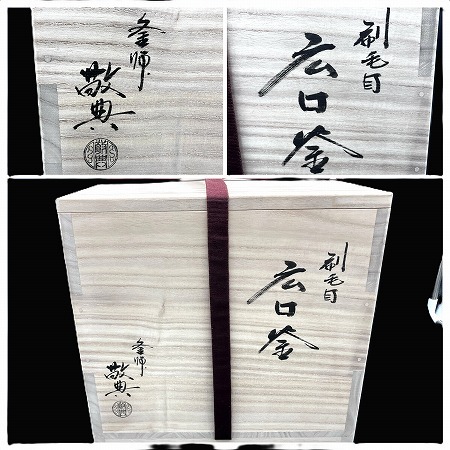 釜師
敬典
刷毛目
広口釜
刷毛目
広口釜
釜師
敬典